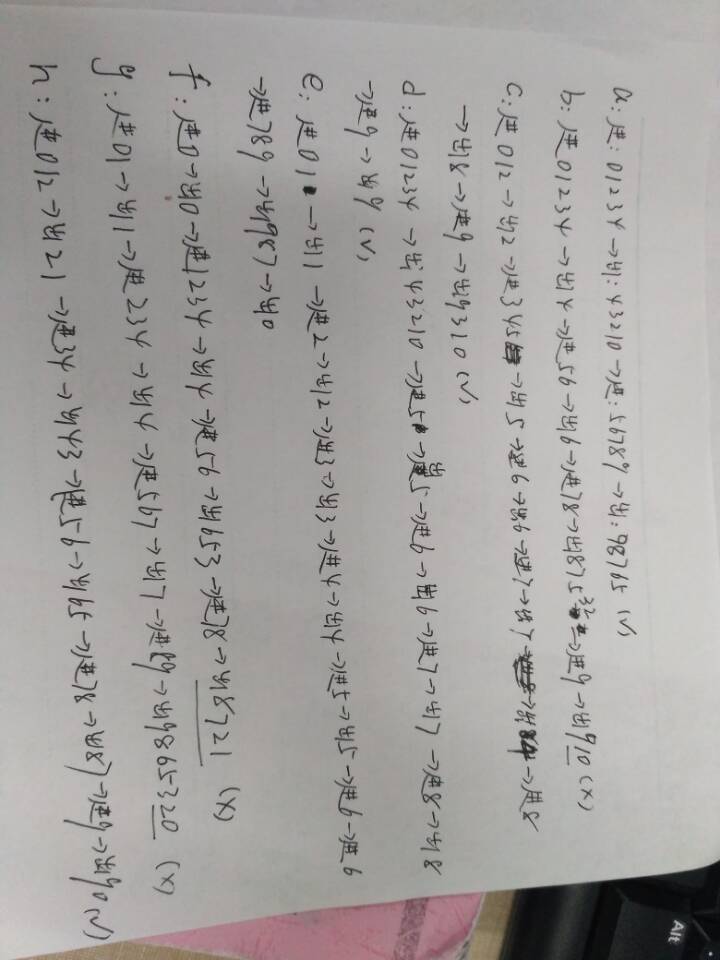 a: 进: 01234→出: 43210→进: 56789→出: 98765 (√)
b: 进01234→出4→进56→出6→进78→出875 32→进9→出910 (×)
c: 进012→出2→进345→出5→进6→出6→进7→出7→出→进8
→出8→进9→出9310 (√)
d: 进01234→出43210→进5→出5→进6→出6→进7→出7→进8→出8
→进9→出9 (√)
e: 进01→出1→进2→出2→进3→出3→进4→出4→进5→出5→进6→出6
→进789→出987→出0
f: 进0→出0→进1234→出4→进56→出653→进78→出8721 (×)
g: 进01→出1→进234→出4→进567→出7→进89→出9865320 (×)
h: 进012→出21→进34→出43→进56→出65→进78→出87→进9→出90 (√)
Alt